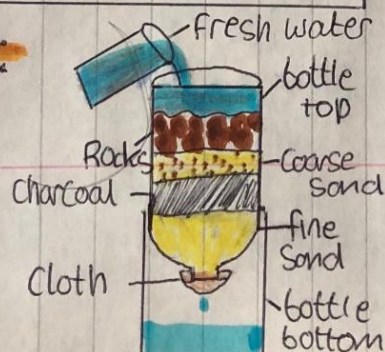 fresh water
bottle
top
Rocks
Coarse
Sand
Charcoal
fine
Sand
Cloth
bottle
bottom